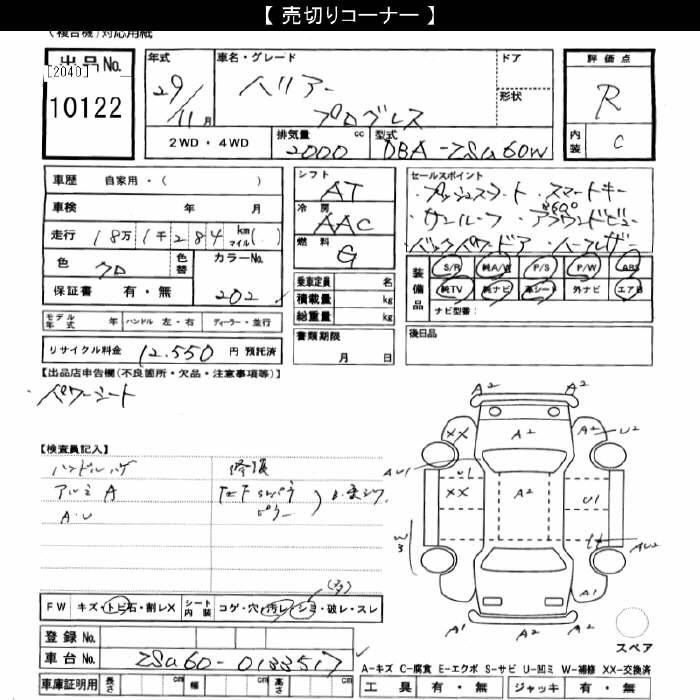 【 売切りコーナー 】
(複合機)対応用紙
出品No.
[2040]
10122
年式
29/11月
車名・グレード
ハリアー
プログレス
ドア
形状
評価点
R
内装 C
2WD・4WD
排気量 cc
2000
型式
DBA-ZSU60W
車歴 自家用・( )
車検 年 月
走行 18万1千284 km マイル( )
色 クロ
色替
カラーNo.
202
保証書 有・無
モデル年式 年 ハンドル 左・右 ディーラー・並行
リサイクル料金 12.550 円 預託済
シフト
AT
冷房
AAC
燃料
G
乗車定員 名
積載量 kg
総重量 kg
書類期限
月 日
セールスポイント
・プッシュスタート ・スマートキー
・サンルーフ ・360°アラウンドビュー
・バックパワードア ・ハーフレザー
装備品
S/R 純A/W P/S P/W ABS
純TV 純ナビ 革シート 外ナビ エアB
ナビ型番:
後日品
【出品店申告欄(不良箇所・欠品・注意事項等)】
・パワーシート
【検査員記入】
ハンドルハゲ
アルミ A
A・U
修復
FW キズ・トビ石・割レX シート内装 コゲ・穴・汚レ・シミ・破レ・スレ
登録 No.
車台 No. ZSU60-0133517
車庫証明用 長さ cm 幅 cm 高さ cm
A2 A2
XX A2 A2 U2
AU1 U1
XX A2 U1
W3 AU2
A1 A2
スペア
A-キズ C-腐食 E-エクボ S-サビ U-凹ミ W-補修 XX-交換済
工具 有・無 ジャッキ 有・無